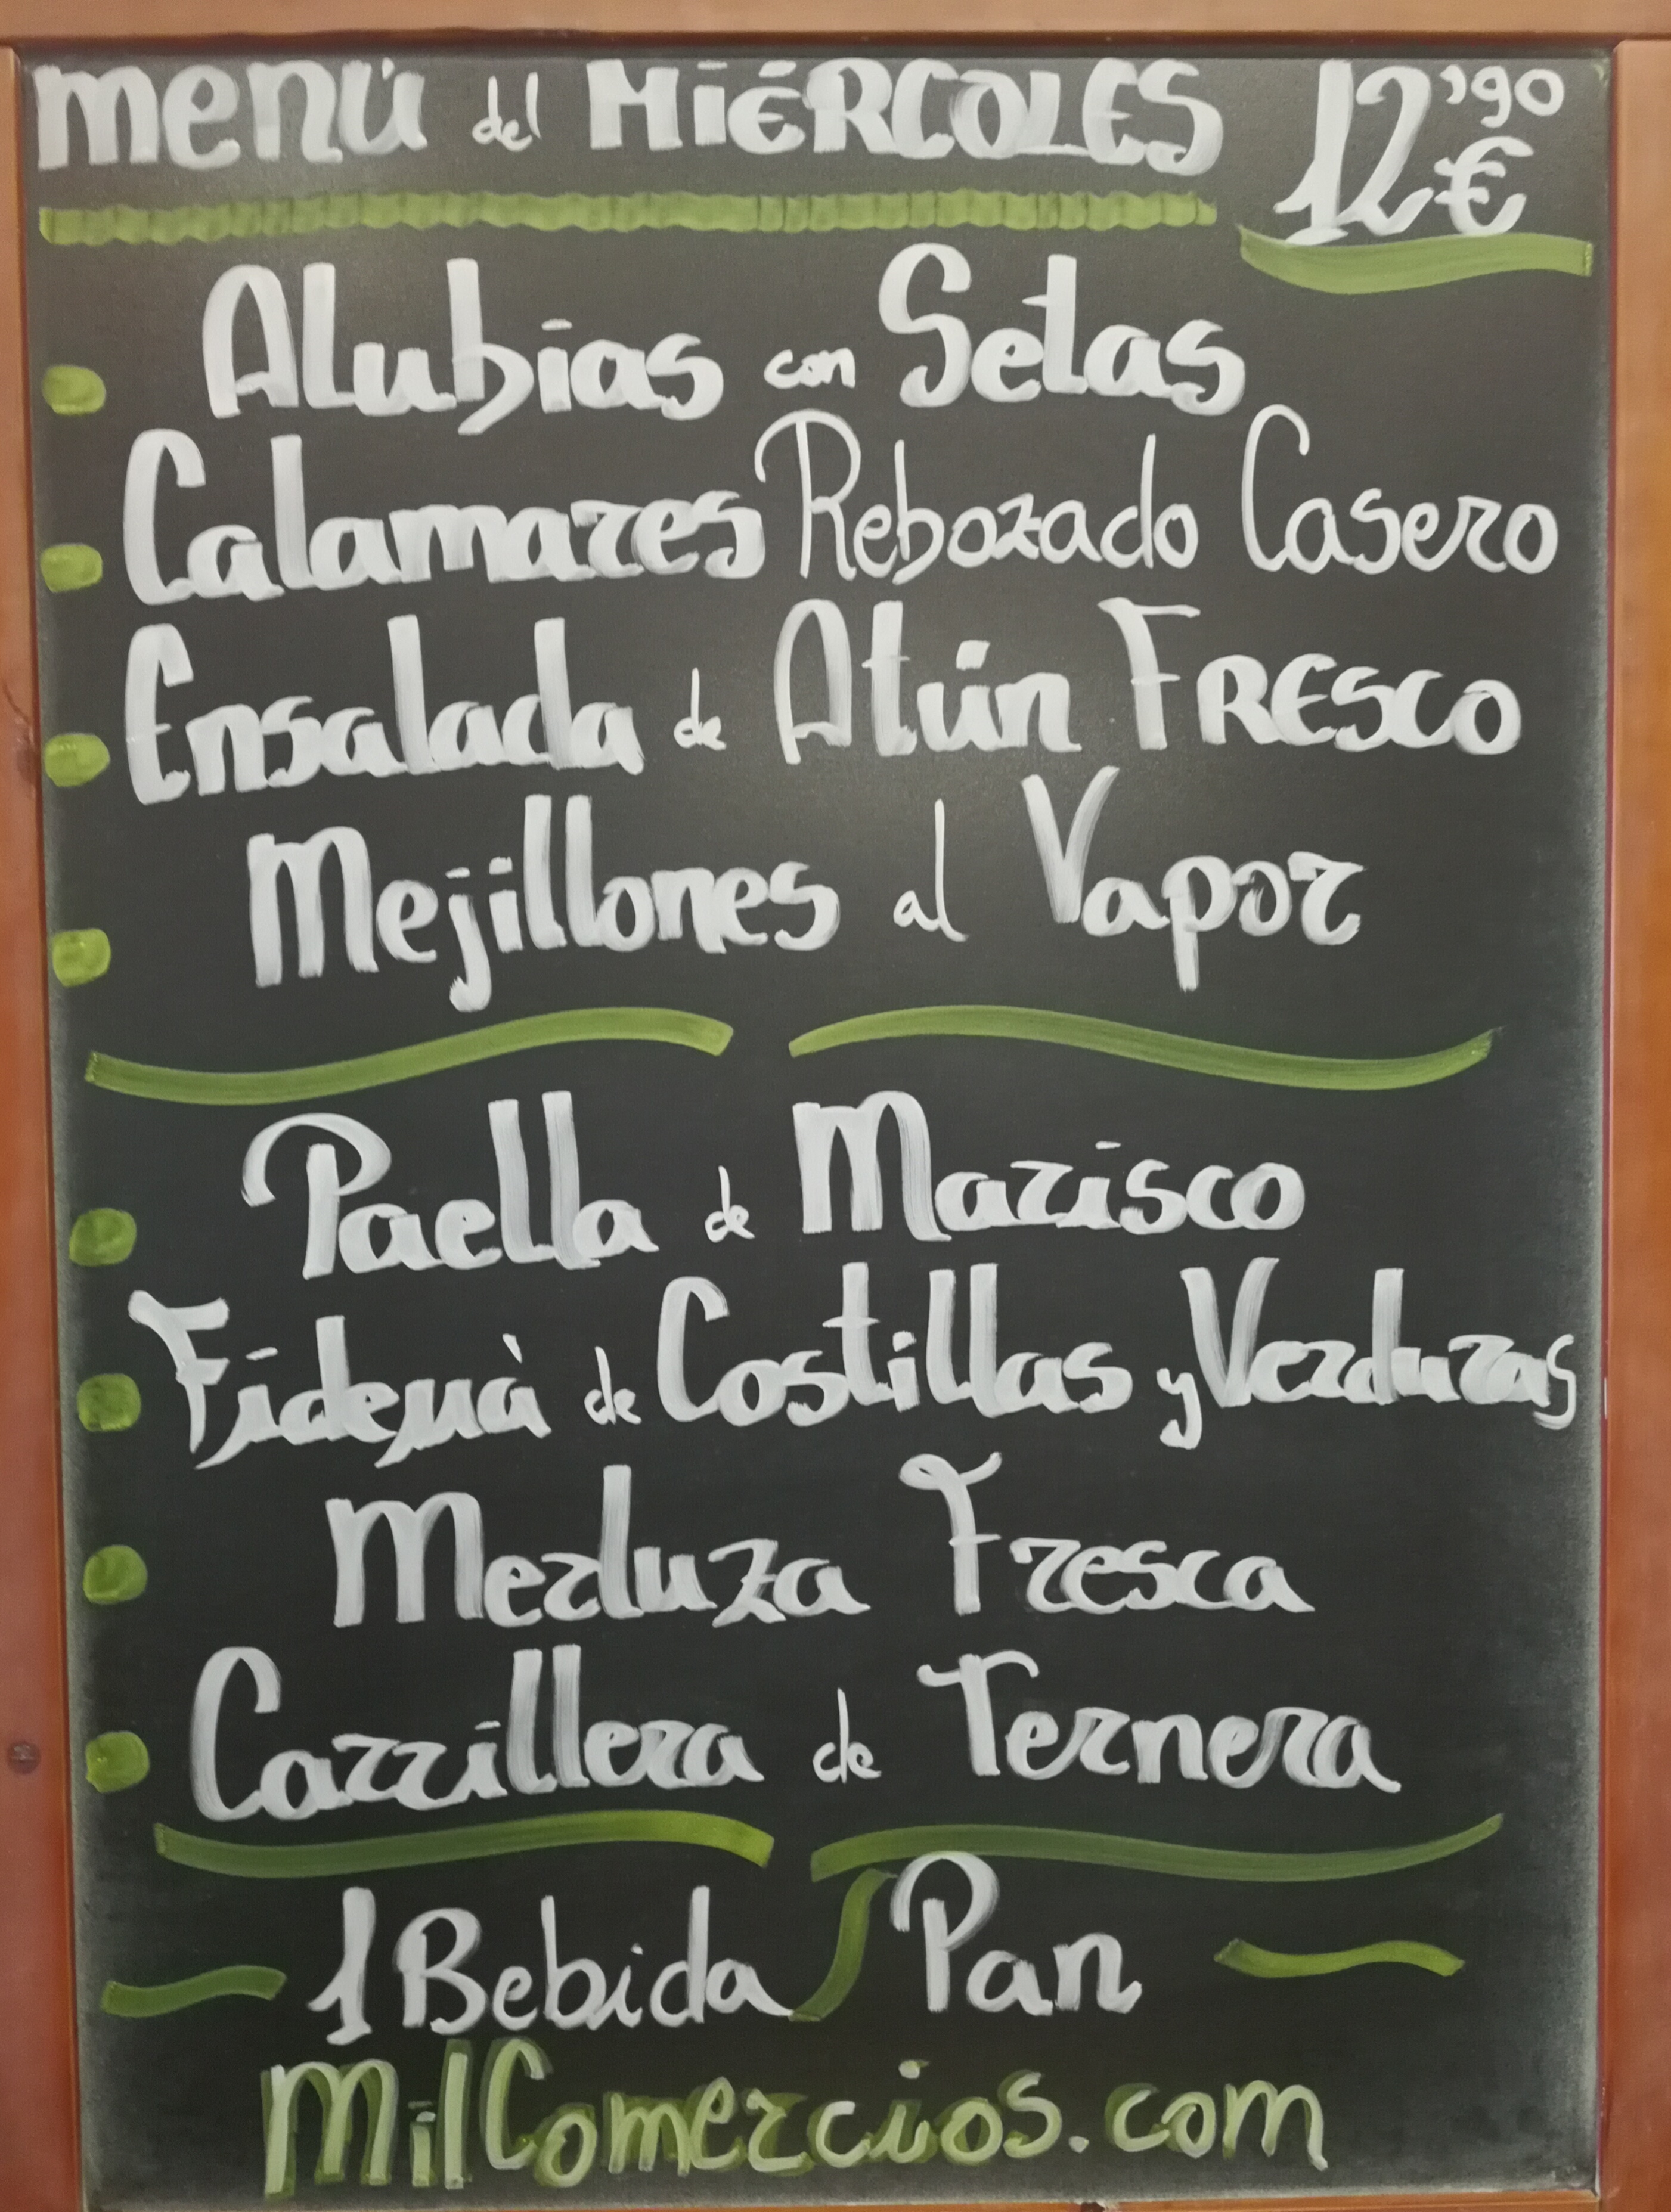 menú del MiÉRCOLES 12'90 €
Alubias con Setas
Calamares Rebozado Casero
Ensalada de Atún FRESCO
Mejillones al Vapor
Paella de Marisco
Fideuà de Costillas y Verduras
Merluza Fresca
Carrillera de Ternera
1 Bebida / Pan
MilComercios.com